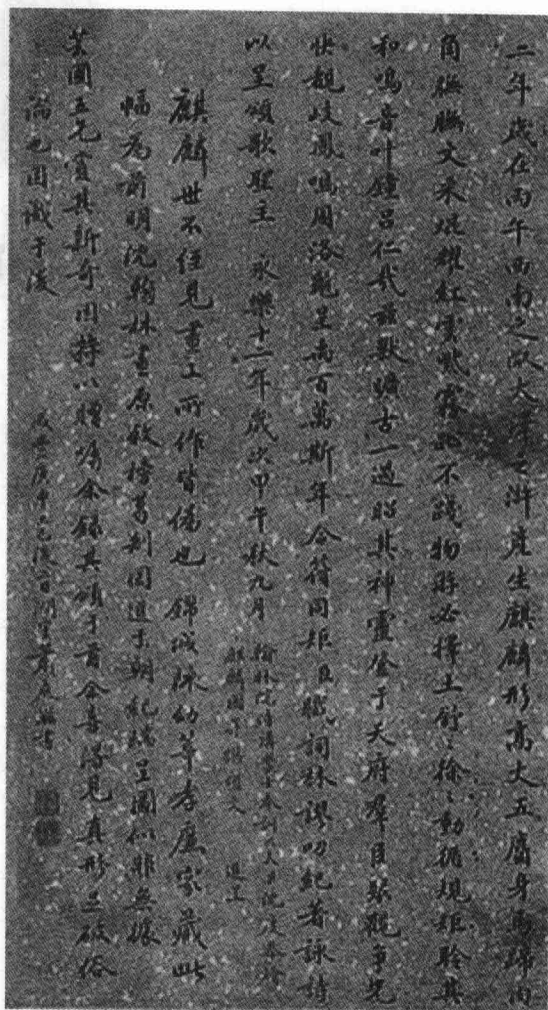 二年歲在丙午西南之陬大澤之滸產生麒麟形高丈五麕身馬蹄肉
角膴膴文采焜耀紅雲紫霧趾不踐物游必擇土舒〻徐〻動循規矩聆其
和鳴音叶鐘呂仁哉茲獸曠古一遇昭其神靈登于天府羣臣聚觀爭先
快覩岐鳳鳴周洛龜呈禹百萬斯年合符同矩臣職詞林謬叨紀著詠詩
以呈頌歌聖主 永樂十二年歲次甲午秋九月
翰林院侍講學士奉訓大夫沈度
麒麟圖 進上
麒麟世不恒見畫工所作皆偽也 錦城陳幼華孝廉家藏此
幅為前明沈翰林畫原敘榜葛剌國進于朝紀瑞呈圖似非無據
國王 其新奇因持以贈囑余錄其頌于首余喜得見真形且破俗
論也因識于後
庚申 後 蕭 書